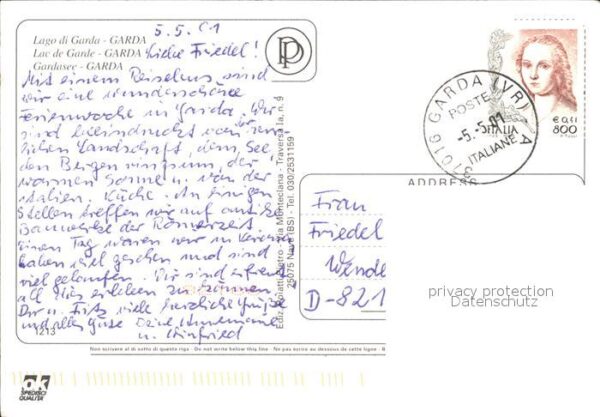 Lago di Garda - GARDA
Lac de Garde - GARDA
Gardasee - GARDA
5.5.01
Liebe Friedel!
Mit einem Reisebus sind
wir eine wunderschöne
Ferienwoche in Garda. Wir
sind beeindruckt von der
lichen Landschaft, dem See,
den Bergen ringsum, der
warmen Sonne u. von der
italien. Küche. An einigen
Stellen treffen wir auf antike
Bauwerke der Römerzeit
Einen Tag waren wir in Verona
haben viel gesehen und sind
viel gelaufen. Wir sind erfreut
all dies erleben zu können
Dir u. Fritz viele herzliche Grüße
und alles Gute Deine
u. Winfried
1213
PD
Traversa Ia, n. 9
25075 Nave (BS) - Tel. 030/2531159
37016 GARDA (VR)
POSTE
-5.-5.01
ITALIANE
ITALIA
€ 0,41
800
ADDRESS
Frau
Friedel
Wende
D-821
privacy protection
Datenschutz
Non scrivere al di sotto di questa riga - Do not write below this line - Ne pas écrire au dessous de cette ligne -
ok
SPEDISCI
QUALITÀ